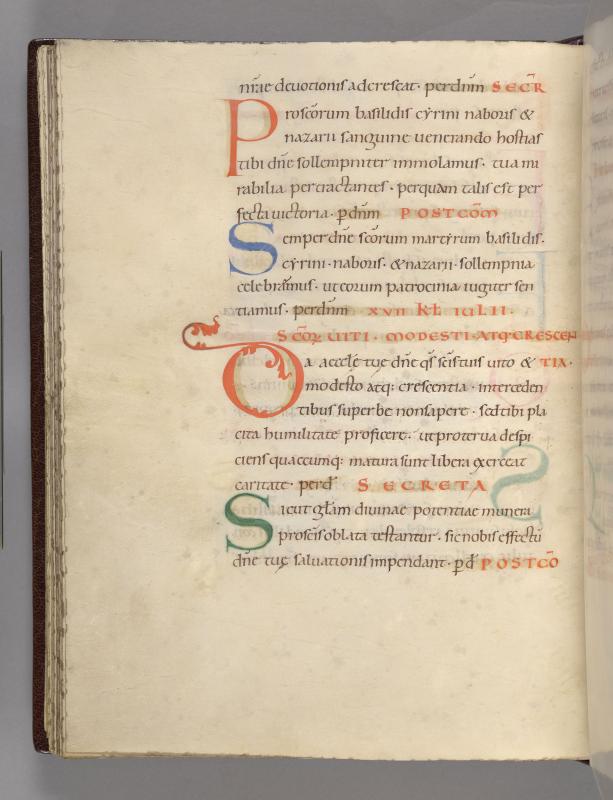 nr̄ae deuotionis adcrescat · perdn̄m SECR̄
Pro sc̄orum basilidis cyrini naboris &
nazarii sanguine uenerando hostias
tibi dn̄e sollempniter immolamus · tua mi
rabilia pertractantes · per quam talis est per
fecta uictoria · p̲dn̄m POSTCOM̄
Semper dn̄e sc̄orum martyrum basilidis ·
cyrini · naboris · & nazarii · sollempnia
celebramus · ut eorum patrocinia iugiter sen
tiamus · perdn̄m XVII KŁ IULII ·
SC̄OR̄ UITI · MODESTI · ATQ· CRESCEN
Da aeccl̄ę tuę dn̄e q̄s sc̄is tuis uito & TIA ·
modesto atq: crescentia · interceden
tibus superbe non sapere · sed tibi pla
cita humilitate proficere · ut proterua despi
ciens quaecumq: matura sunt libera exerceat
caritate · perd̄ SECRETA
Sicut gl̄am diuinae potentiae munera
pro sc̄is oblata testantur · sic nobis effectū
dn̄e tuę saluationis impendant · p̲d̄ POSTCŌ